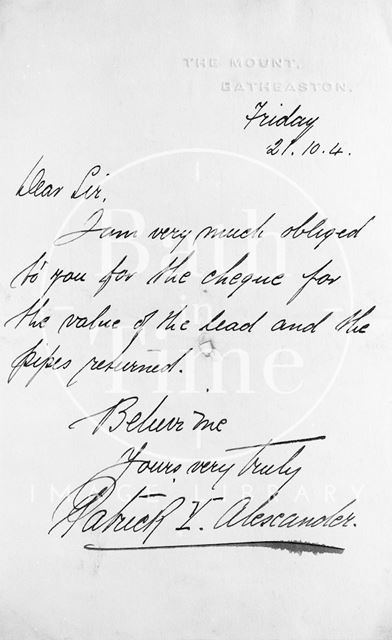 THE MOUNT,
BATHEASTON.
Friday
21.10.4.
Dear Sir,
I am very much obliged
to you for the cheque for
the value of the lead and the
pipes returned.
Believe me
Yours very truly
Patrick Y. Alexander.
Bath
in
Time
IMAGE LIBRARY